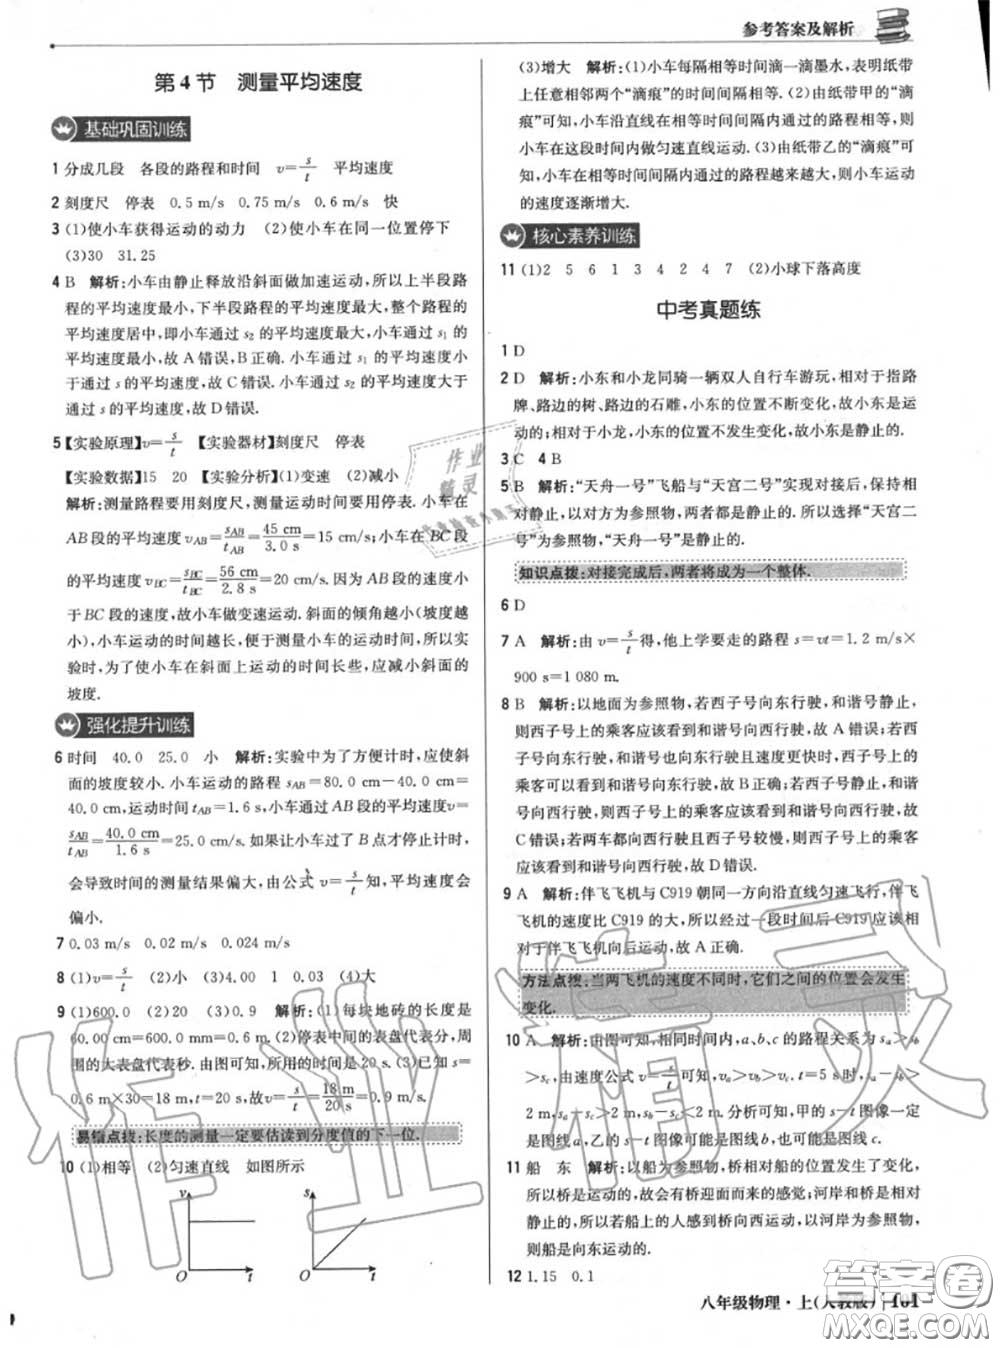 参考答案及解析
第4节 测量平均速度
基础巩固训练
1 分成几段 各段的路程和时间 v=s/t 平均速度
2 刻度尺 停表 0.5 m/s 0.75 m/s 0.6 m/s 快
3 (1)使小车获得运动的动力 (2)使小车在同一位置停下
(3)30 31.25
4 B 解析:小车由静止释放沿斜面加速运动,所以上半段路
程的平均速度最小,下半段路程的平均速度最大,整个路程的
平均速度居中,即小车通过 s₂ 的平均速度最大,小车通过 s₁ 的
平均速度最小,故 A 错误,B 正确. 小车通过 s₁ 的平均速度小
于通过 s 的平均速度,故 C 错误. 小车通过 s₂ 的平均速度大于
通过 s 的平均速度,故 D 错误.
5 【实验原理】v=s/t 【实验器材】刻度尺 停表
【实验数据】15 20 【实验分析】(1)变速 (2)减小
解析:测量路程要用刻度尺,测量运动时间要用停表. 小车在
AB 段的平均速度 v_AB=s_AB/t_AB=45 cm/3.0 s=15 cm/s;小车在 BC 段
的平均速度 v_BC=s_BC/t_BC=56 cm/2.8 s=20 cm/s. 因为 AB 段的速度小
于 BC 段的速度,故小车做变速运动. 斜面的倾角越小(坡度越
小),小车运动的时间越长,便于测量小车的运动时间,所以实
验时,为了使小车在斜面上运动的时间长些,应减小斜面的
坡度.
强化提升训练
6 时间 40.0 25.0 小 解析:实验中为了方便计时,应使斜
面的坡度较小. 小车运动的路程 s_AB=80.0 cm-40.0 cm=
40.0 cm,运动时间 t_AB=1.6 s,小车通过 AB 段的平均速度v=
s_AB/t_AB=40.0 cm/1.6 s=25.0 cm/s. 如果让小车过了 B 点才停止计时,
会导致时间的测量结果偏大,由公式 v=s/t 知,平均速度会
偏小.
7 0.03 m/s 0.02 m/s 0.024 m/s
8 (1)v=s/t (2)小 (3)4.00 1 0.03 (4)大
9 (1)600.0 (2)20 (3)0.9 解析:(1)每块地砖的长度是
60.00 cm=600.0 mm. (2)停表中间的表盘代表分,周
围的大表盘代表秒. 由图可知,所用的时间是 20 s. (3)已知 s=
0.6 m×30=18 m,t=20 s,故 v=s/t=18 m/20 s=0.9 m/s.
易错点拨:长度的测量一定要估读到分度值的下一位.
10 (1)相等 (2)匀速直线 如图所示
v
O
t
s
O
t
(3)增大 解析:(1)小车每隔相等时间滴一滴墨水,表明纸带
上任意相邻两个“滴痕”的时间间隔相等. (2)由纸带甲的“滴
痕”可知,小车沿直线在相等时间间隔内通过的路程相等,则
小车在这段时间内做匀速直线运动. (3)由纸带乙的“滴痕”可
知,小车在相等时间间隔内通过的路程越来越大,则小车运动
的速度逐渐增大.
核心素养训练
11 (1)2 5 6 1 3 4 2 4 7 (2)小球下落高度
中考真题练
1 D
2 D 解析:小东和小龙同骑一辆双人自行车游玩,相对于指路
牌、路边的树、路边的石雕,小东的位置不断变化,故小东是运
动的;相对于小龙,小东的位置不发生变化,故小东是静止的.
3 C 4 B
5 B 解析:“天舟一号”飞船与“天宫二号”实现对接后,保持相
对静止,以对方为参照物,两者都是静止的. 所以选择“天宫二
号”为参照物,“天舟一号”是静止的.
知识点拨:对接完成后,两者将成为一个整体.
6 D
7 A 解析:由 v=s/t得,他上学要走的路程 s=vt=1.2 m/s×
900 s=1 080 m.
8 B 解析:以地面为参照物,若西子号向东行驶,和谐号静止,
则西子号上的乘客应该看到和谐号向西行驶,故 A 错误;若西
子号向东行驶,和谐号也向东行驶但速度更快,西子号上的
乘客可以看到和谐号向东行驶,故 B 正确;若西子号静止,和谐
号向西行驶,则西子号上的乘客应该看到和谐号向西行驶,故
C 错误;若两车都向西行驶且西子号较慢,则西子号上的乘客
应该看到和谐号向西行驶,故 D 错误.
9 A 解析:伴飞飞机与 C919 朝同一方向沿直线匀速飞行,伴飞
飞机的速度比 C919 的大,所以经过一段时间后 C919 应该相
对于伴飞飞机向后运动,故 A 正确.
方法点拨:当两飞机的速度不同时,它们之间的位置会发生
变化.
10 A 解析:由图可知,相同时间内,a、b、c 的路程关系为 s_a>s_b
>s_c,由速度公式 v=s/t 可知,v_a>v_b>v_c. t=5 s 时,s_a-s_b>
2 m,s_a-s_c>2 m,s_b-s_c<2 m,观察可知,甲的 s-t 图像一定
是图线 a,乙的 s-t 图像可能是图线 b,也可能是图线 c.
11 船 东 解析:以船为参照物,桥相对船的位置发生了变化,
所以桥是运动的,故会有桥迎面而来的感觉;河岸和桥是相对
静止的,所以若船上的人感到桥向西运动,以河岸为参照物,
则船是向东运动的.
12 1.15 0.1
八年级物理·上(人教版) 161
作业精灵
答案圈
MXQE.COM